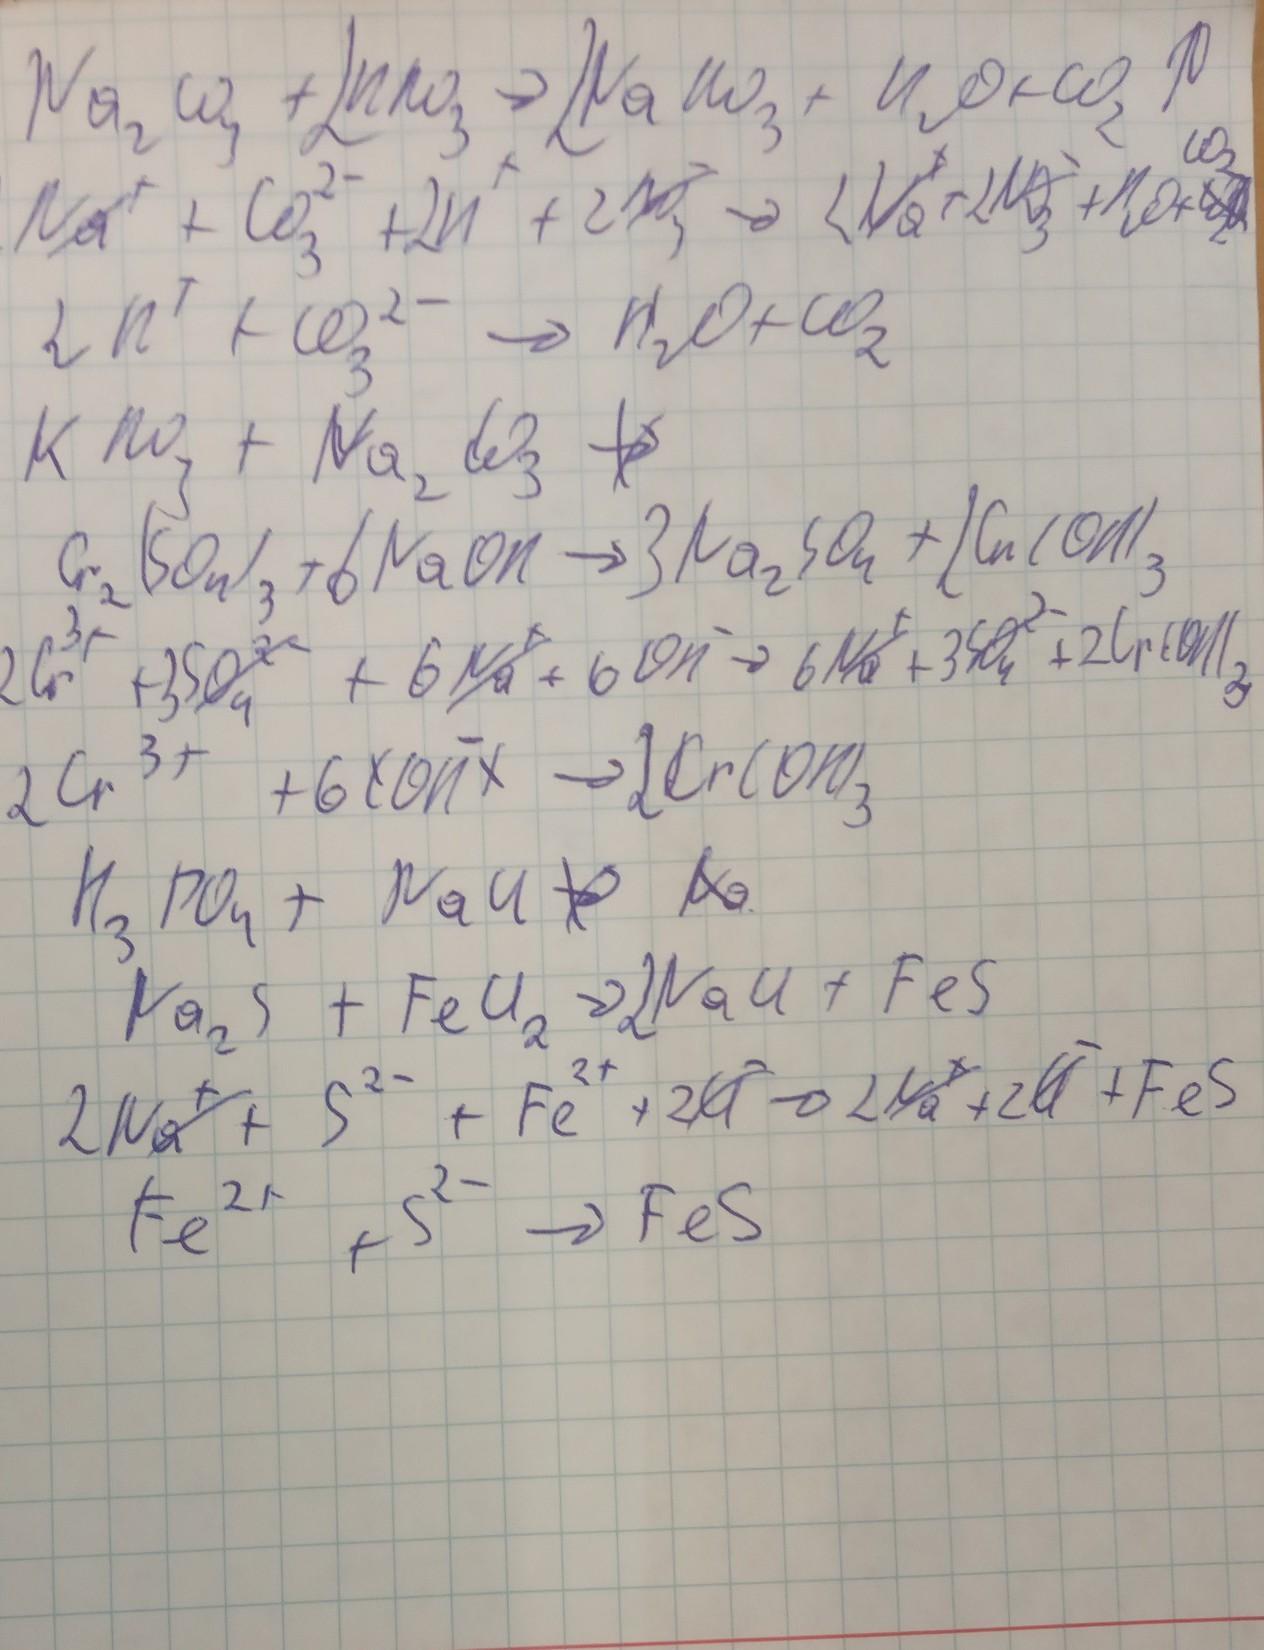 Na₂CO₃ + 2HNO₃ → 2NaNO₃ + H₂O + CO₂ ↑
Na⁺ + CO₃²⁻ + 2H⁺ + 2NO₃⁻ → 2Na⁺ + 2NO₃⁻ + H₂O + CO₂
2H⁺ + CO₃²⁻ → H₂O + CO₂
KNO₃ + Na₂CO₃ ↛
Cr₂(SO₄)₃ + 6NaOH → 3Na₂SO₄ + 2Cr(OH)₃
2Cr³⁺ + 3SO₄²⁻ + 6Na⁺ + 6OH⁻ → 6Na⁺ + 3SO₄²⁻ + 2Cr(OH)₃
2Cr³⁺ + 6(OH⁻) → 2Cr(OH)₃
H₃PO₄ + NaCl ↛
Na₂S + FeCl₂ → 2NaCl + FeS
2Na⁺ + S²⁻ + Fe²⁺ + 2Cl⁻ → 2Na⁺ + 2Cl⁻ + FeS
Fe²⁺ + S²⁻ → FeS